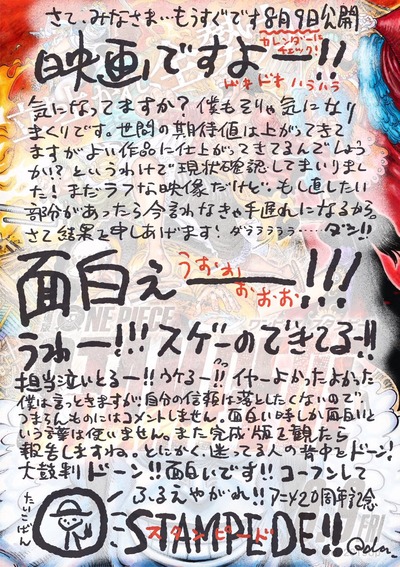 さて、みなさま…もうすぐです8月9日公開
カレンダーにチェック!
映画ですよー!!
ドキドキ ハラハラ
気になってますか?僕もそりゃ気になり
まくりです。世間の期待値は上がってきて
ますがよい作品に仕上がってきてるんでしょう
か!?というわけで現状確認してまいりまし
た!まだラフな映像だけど、もし直したい
部分があったら今言わなきゃ手遅れになるから。
さて結果を申しあげます! ダララララララ……ダン!!
面白ぇーー!!!
うおおおおお
うわー!!! スゲーのできてるー!!
担当泣いとるー!! ウケるー!! イヤーよかったよかった
僕は言っときますが自分の信頼は落としたくないので
つまらんものにはコメントしません。面白い時しか面白いと
いう言葉は使いません。また完成版を観たら
報告しますね。とにかく、迷ってる人の背中をドーン!
太鼓判ドーン!! 面白いです!! コーフンして
たいこばん
ふるえやがれ!! アニメ20周年記念
STAMPEDE!!
スタンピード